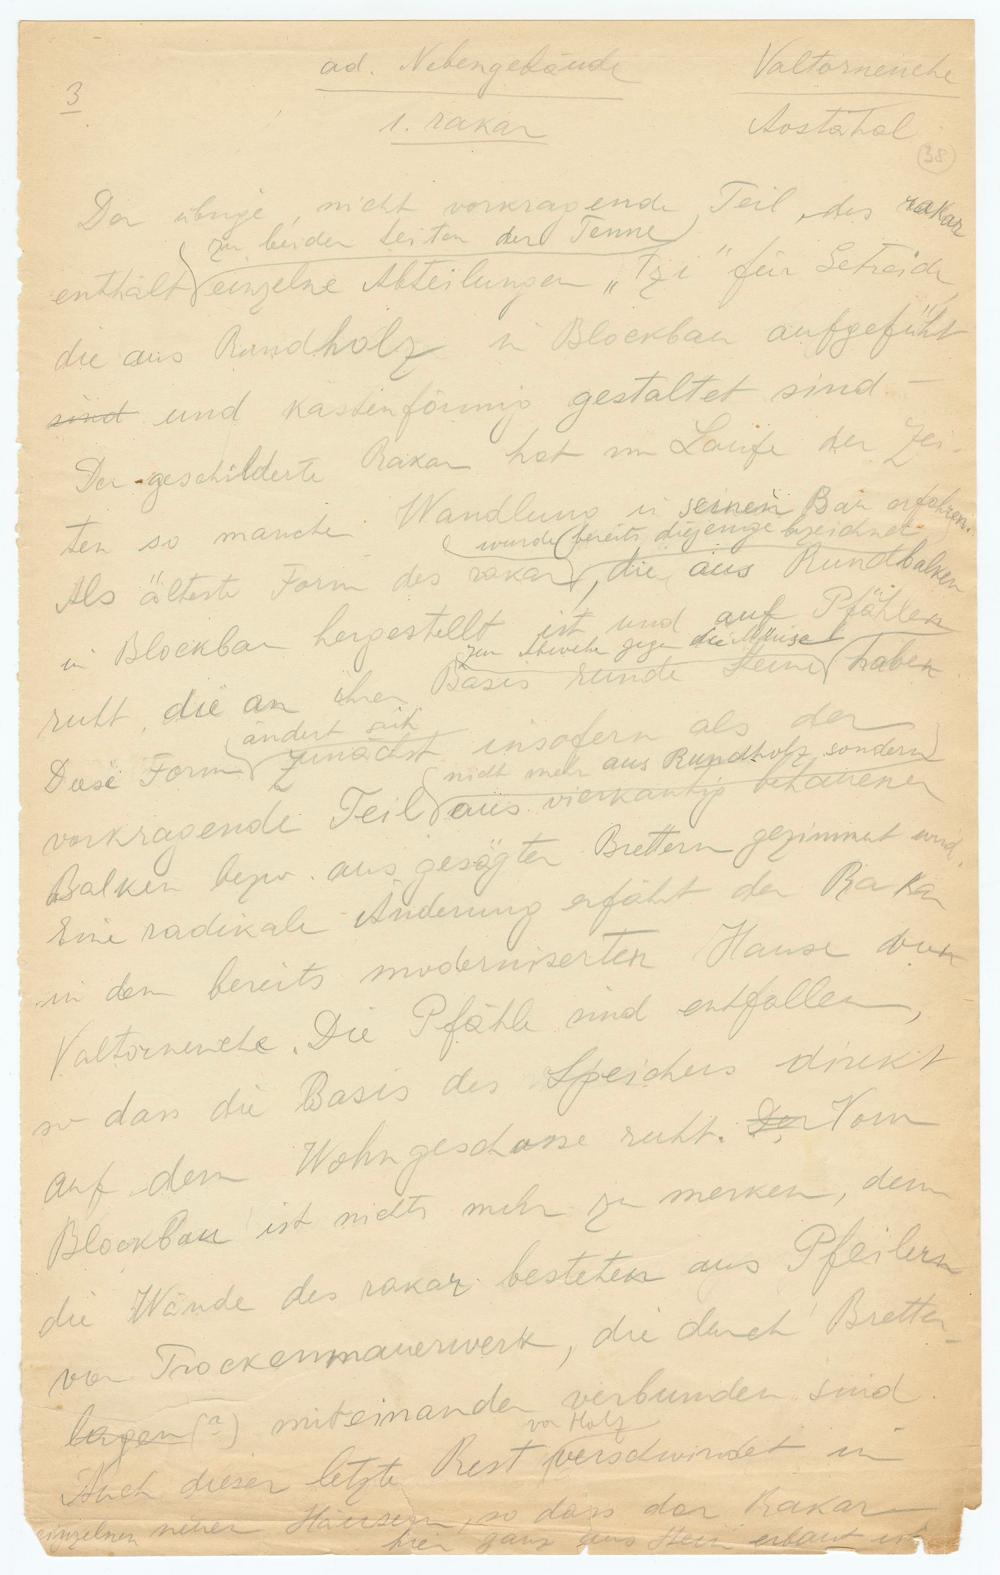 ad. Nebengebäude
Valtornenche
3
1. rakar
Aostatal
38
Der übrige, nicht vorkragende Teil des rakar
zu beiden Seiten der Tenne
enthält einzelne Abteilungen „Tzi“ für Getreide,
die aus Rundholz in Blockbau aufgeführt
sind und kastenförmig gestaltet sind –
Der geschilderte Rakar hat im Laufe der Zei-
ten so manche Wandlung in seinem Bau erfahren.
wurde bereits diejenige bezeichnet
Als älteste Form des rakar, die aus Rundbalken
in Blockbau hergestellt ist und auf Pfählen
zur Abwehr gegen die Mäuse
ruht, die an ihrer Basis runde Steine haben
ändert sich
Diese Form zunächst insofern als der
nicht mehr aus Rundholz, sondern
vorkragende Teil aus vierkantig behauenen
Balken bezw. aus gesägten Brettern gezimmert wird.
Eine radikale Änderung erfährt der Rakar
in dem bereits modernisierten Hause von
Valtornenche. Die Pfähle sind entfallen,
so dass die Basis des Speichers direkt
auf dem Wohngeschosse ruht. Der Vom
Blockbau ist nichts mehr zu merken, denn
die Wände des rakar bestehen aus Pfeilern
von Trockenmauerwerk, die durch Bretter-
lagen (a) miteinander verbunden sind.
von Holz
Auch dieser letzte Rest verschwindet in
einzelnen neuen Häusern, so dass der Rakar
hier ganz aus Stein erbaut ist